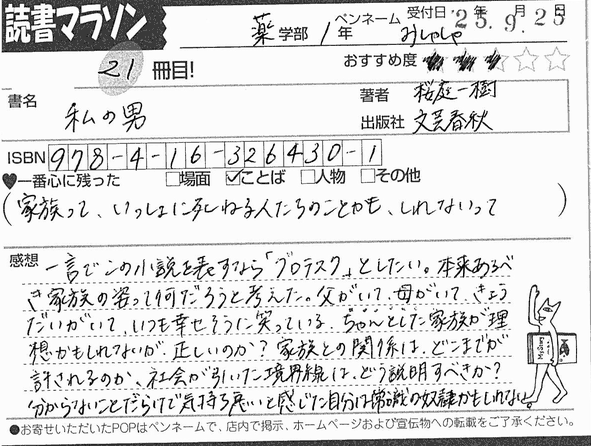 読書マラソン
薬学部 1年 ペンネーム みしゃしゃ 受付日 '25年 9月 25日
21 冊目!
おすすめ度 ★★★☆☆
書名 私の男
著者 桜庭一樹
出版社 文芸春秋
ISBN 978-4-16-326430-1
♥一番心に残った □場面 ☑ことば □人物 □その他
(家族って、いっしょに死ねる人たちのことかも、しれないって)
感想 一言でこの小説を表すなら「グロテスク」としたい。本来あるべ
き家族の姿って何だろうと考えた。父がいて、母がいて、きょう
だいがいて、いつも幸せそうに笑っている、ちゃんとした家族が理
想かもしれないが、正しいのか?家族との関係は、どこまでが
許されるのか、社会が引いた境界線は、どう説明すべきか?
分からないことだらけで気持ち悪いと感じた自分は常識の奴隷かもしれない。
●お寄せいただいたPOPはペンネームで、店内で掲示、ホームページおよび宣伝物への転載をご了承ください。